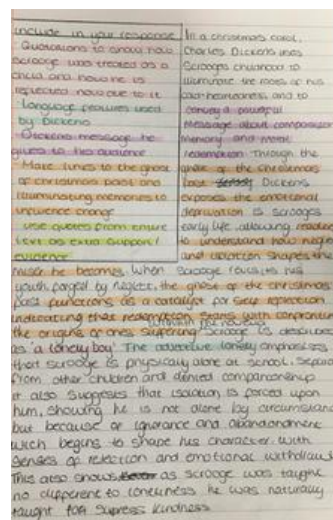 include in your response
· Quotations to show how
scrooge was treated as a
child and how he is
reflected now due to it
· Language features used
by Dickens
· Dickens message he
gives to his audience
· Make links to the ghost
of christmas past and
illuminating memories to
influence change
· use quotes from entire
text as extra support/
evidence
In a christmas carol,
Charles Dickens uses
Scrooges childhood to
illuminate the roots of his
cold-heartedness and to
convey a powerful
message about compassion
memory and moral
redemption. Through the
ghost of the christmas
past Dickens
exposes the emotional
deprivation is scrooges
early life, allowing readers
to understand how neglect
and isolation shapes the
miser he becomes. When scrooge revisits his
youth forged by neglect, the ghost of the christmas
past functions as a catalyst for self reflection
indicating that redemption starts with confronting
the origins of ones suffering.
within the novella
Scrooge is described
as 'a lonely boy'. The adjective 'lonely' emphasises
that scrooge is physically alone at school, separ
from other children and denied companionship
it also suggests that isolation is forced upon
him, showing he is not alone by circumstance
but because of ignorance and abandonment
wich begins to shape his character. With
senses of rejection and emotional withdrawal
This also shows as scrooge was taught
no different to loneliness he was naturally
taught to supress kindness